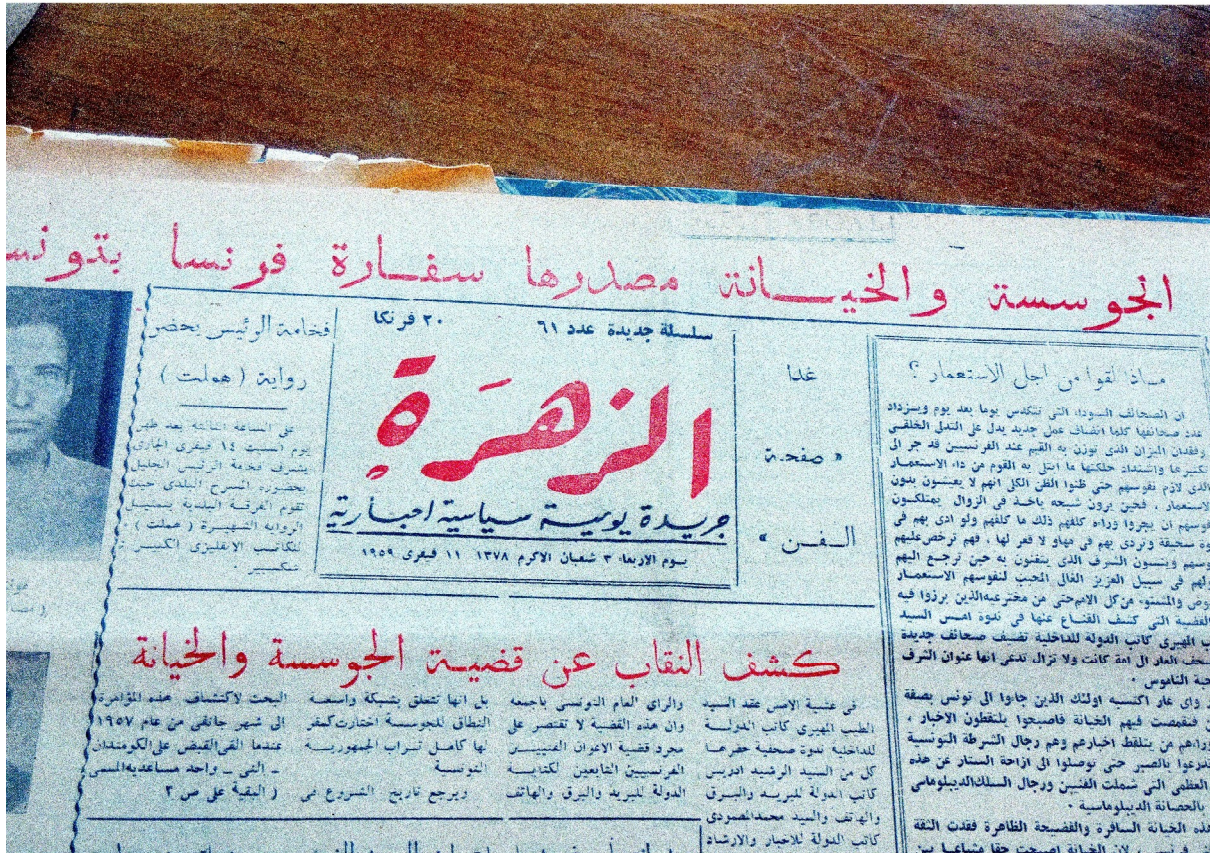 الجوسسة والخيـــانة مصدرها سفــارة فرنسا بتونس
ماذا لقوا من اجل الاستعمار ؟
ان الصحائف السوداء التى تتكدس يوما بعد يوم ويــزداد
عدد صحائفها كلما انضاف عمل جديد يدل على التدلى الخلقــى
وفقدان الميزان الذى توزن به القيم عند الفرنسيين قد جر الى
تكثيرها واشتداد حلكتها ما ابتلى به القوم من داء الاستعمــار
الذى لازم نفوسهم حتى ظنوا الظن الكلى انهم لا يعيشــون بدون
الاستعمار ، فحين يرون شبحه ياخــذ فى الزوال يمتلكــون
ان يجروا وراءه كلفهم ذلك ما كلفهم ولو ادى بهم فى
سحيقة وتردى بهم فى مهاو لا قعر لها ، فهم ترخص عليهم
وينسون الشرف الذى يتغنون به حين ترجــع اليهم
فى سبيل العزيز الغالى المحبب لنفوسهم الاستعمــار
من كل الامم حتى من مخترعيه الذين برزوا فيه
القضية التى كشف القنــاع عنها فى ندوة امــس السيد
المهيرى كاتب الدولة للداخلية تضيف صحائف جديدة
العار ال امة كانت ولا تزال تدعى انها عنوان الشرف
الناموس ٠
واى عار اكتسبه اولئك الذين جاءوا الى تونس بصفة
فتقمصت فيهم الخيانة فاصبحوا يلتقطون الاخبار ،
من يتلقط اخبارهم وهم رجال الشرطة التونسية
بالصبر حتى توصلوا الى ازاحة الستار عن هذه
العظمى التى شملت الفنيين ورجال السلك الديبلوماسى
بالحصانة الديبلوماسية ٠
هذه الخيانة السافرة والفضيحة الظاهرة فقدت الثقة
لان الخيانة اصبحت حقا مشاعــا بين
غدا
« صفحــة
الــفــن »
سلسلة جديدة عدد ٦١
٢٠ فرنكا
الزهرة
جريدة يوميــة سياسية اخبارية
يــوم الاربعاء ٣ شعبان الاكرم ١٣٧٨ ١١ فيفرى ١٩٥٩
فخامة الرئيس يحضر
رواية ( هملت )
على الساعة الثالثة بعد ظهر
يوم السبت ١٤ فيفرى الجارى
يشرف فخامة الرئيس الجليل
بحضوره المسرح البلدى حيث
تقوم الفرقة البلدية بتمثيــل
الرواية الشهيــرة ( هملت )
للكاتــب الانقليزى الكبيــر
شكسبير ٠
كــشف النقاب عن قضيــة الجوسسة والخيانة
فى عشية الامس عقد السيد
الطيب المهيرى كاتب الدولــة
للداخلية ندوة صحفية حضرهــا
كل من السيد الرشيد ادريس
كاتب الدولة للبريــد والبــرق
والهاتف والسيد محمد المصمودى
كاتب الدولة للاخبار والارشاد
والراى العام التونسى باجمعه
وان هذه القضية لا تقتصر على
مجرد قضية الاعوان الفنييــن
الفرنسيين التابعين لكتابــة
الدولة للبريد والبرق والهاتف
بل انها تتعلق بشبكة واسعــة
النطاق للجوسسة اختارت كمقر
لها كامــل تــراب الجمهوريــة
التونسية
ويرجع تاريخ الشــروع فى
البحث لاكتشــاف هذه المؤامرة
الى شهر جانفى من عام ١٩٥٧
عندما القى القبض على الكومندان
ـ الفى ـ واحد مساعديه المسمى
( البقية على ص ٢